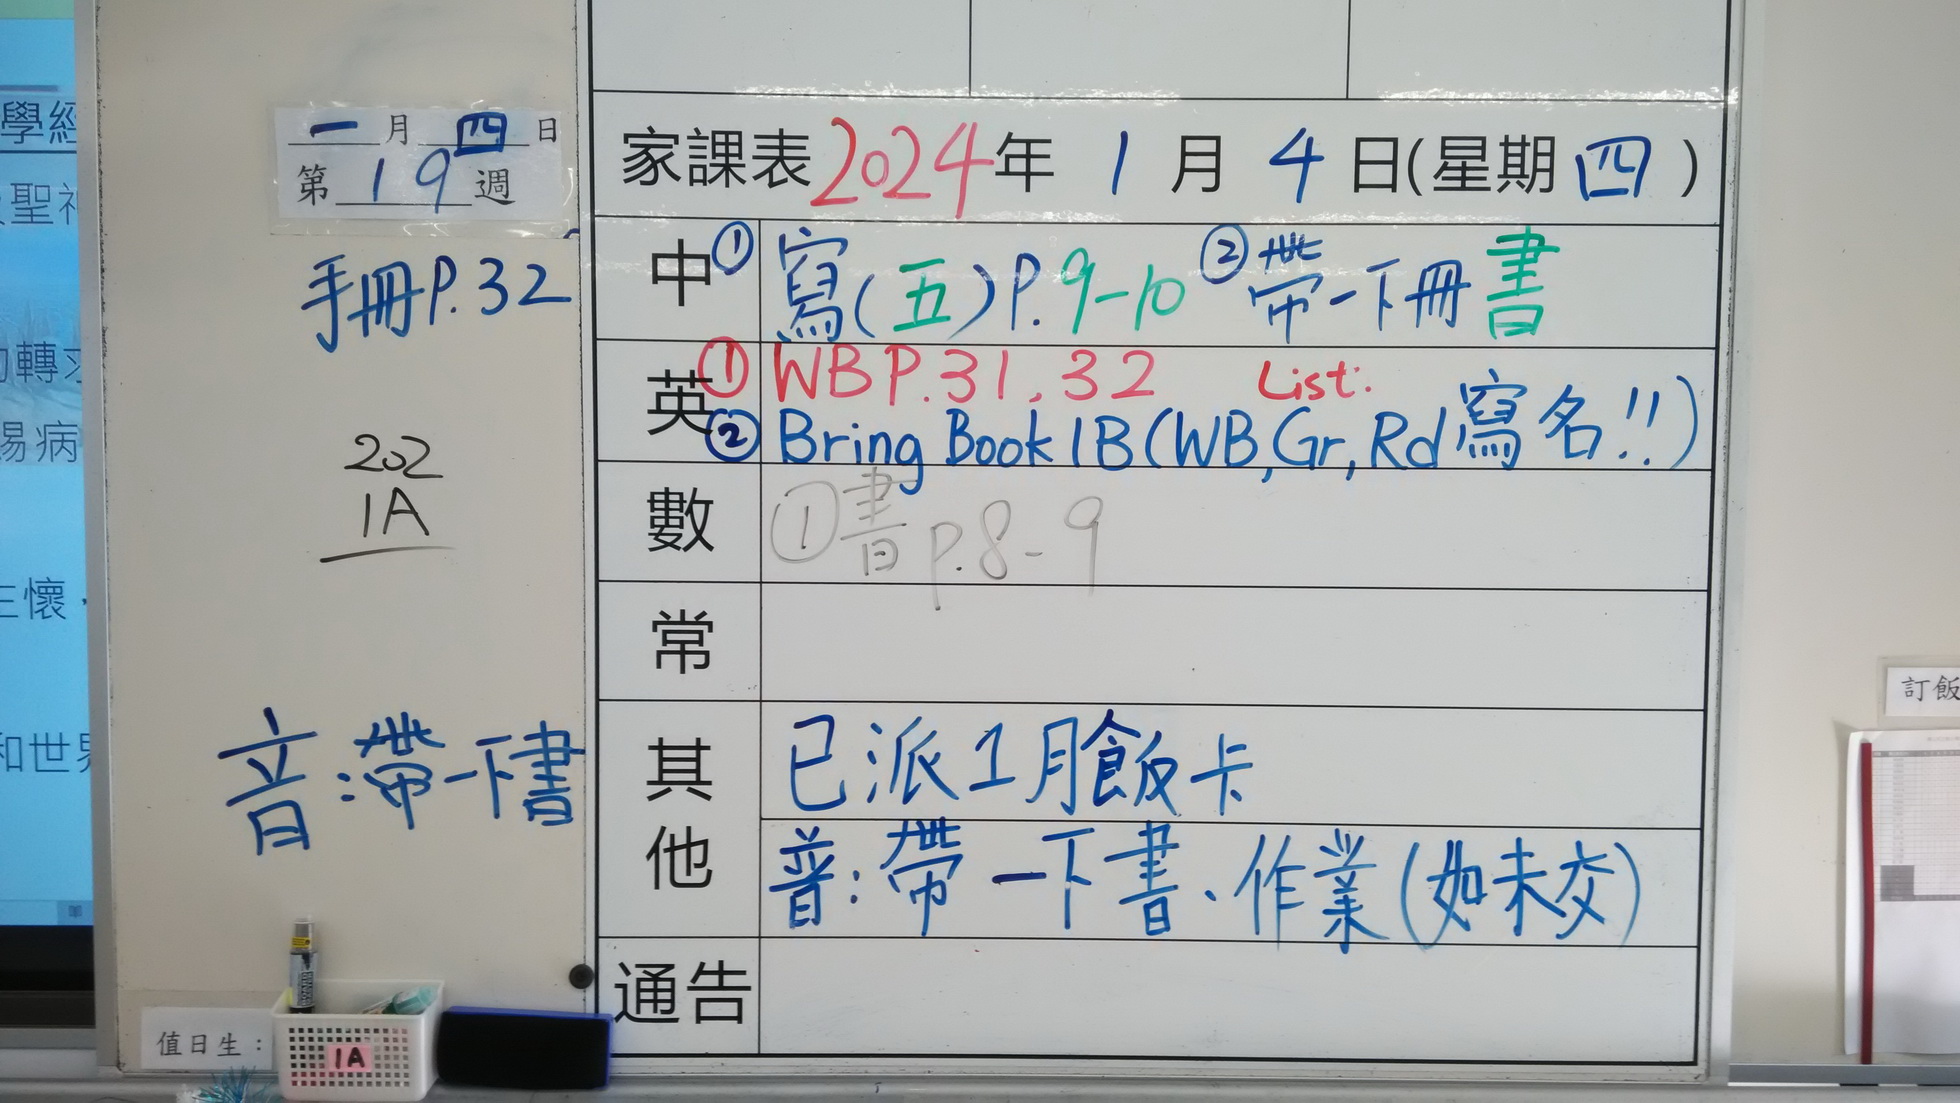 一月四日
第19週
手冊P.32
202
1A
音:帶一下書
家課表2024年1月4日(星期四)
中 ① 寫(五)P.9-10 ②帶一下冊書
英 ① WB P.31,32 List:
② Bring Book 1B(WB,Gr,Rd寫名!!)
數 ①書P.8-9
常
其他 已派1月飯卡
普:帶一下書、作業(如未交)
通告
值日生:
1A
訂飯
學經
聖神
轉求
賜病
懷,
和世界